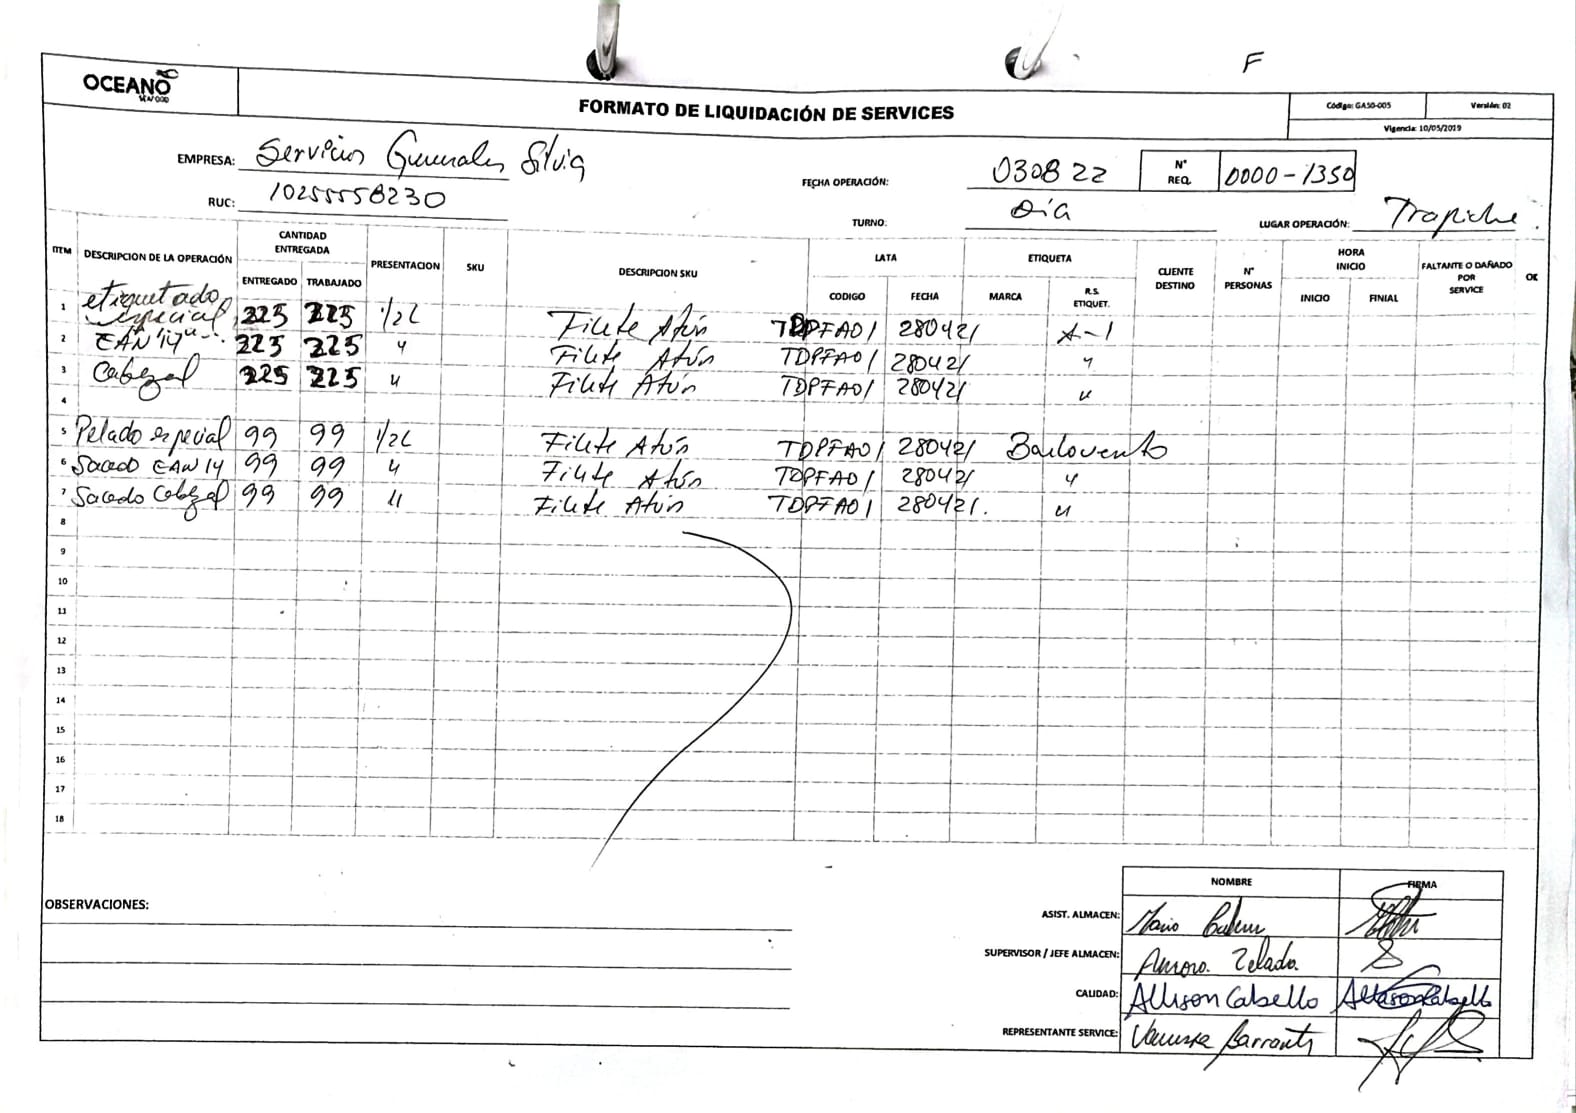 F
OCEANO
SEAFOOD
FORMATO DE LIQUIDACIÓN DE SERVICES
Código: GASO-005
Versión: 02
Vigencia: 10/05/2019
EMPRESA: Servicios Generales Silvia
RUC: 10255558230
FECHA OPERACIÓN: 030822
N° REQ. 0000-1350
TURNO: Día
LUGAR OPERACIÓN: Trapiche.
ITEM DESCRIPCION DE LA OPERACIÓN CANTIDAD ENTREGADA PRESENTACION SKU DESCRIPCION SKU LATA ETIQUETA CLIENTE DESTINO N° PERSONAS HORA INICIO FALTANTE O DAÑADO POR SERVICE OK
ENTREGADO TRABAJADO CODIGO FECHA MARCA R.S. ETIQUET. INICIO FINIAL
1 etiquetado especial 225 225 1/2L Filete Atún TDPFA01 280421 A-1
2 EAN 14 225 225 " Filete Atún TDPFA01 280421 "
3 Cabezal 225 225 " Filete Atún TDPFA01 280421 "
4
5 Pelado especial 99 99 1/2L Filete Atún TDPFA01 280421 Barlovento
6 Sacado EAN 14 99 99 " Filete Atún TDPFA01 280421 "
7 Sacado Cabezal 99 99 " Filete Atún TDPFA01 280421. "
8
9
10
11
12
13
14
15
16
17
18
OBSERVACIONES:
NOMBRE FIRMA
ASIST. ALMACEN: Mario
SUPERVISOR / JEFE ALMACEN: Zelada.
CALIDAD: Allison Cabello Allison Cabello
REPRESENTANTE SERVICE: Vanessa Barrantes